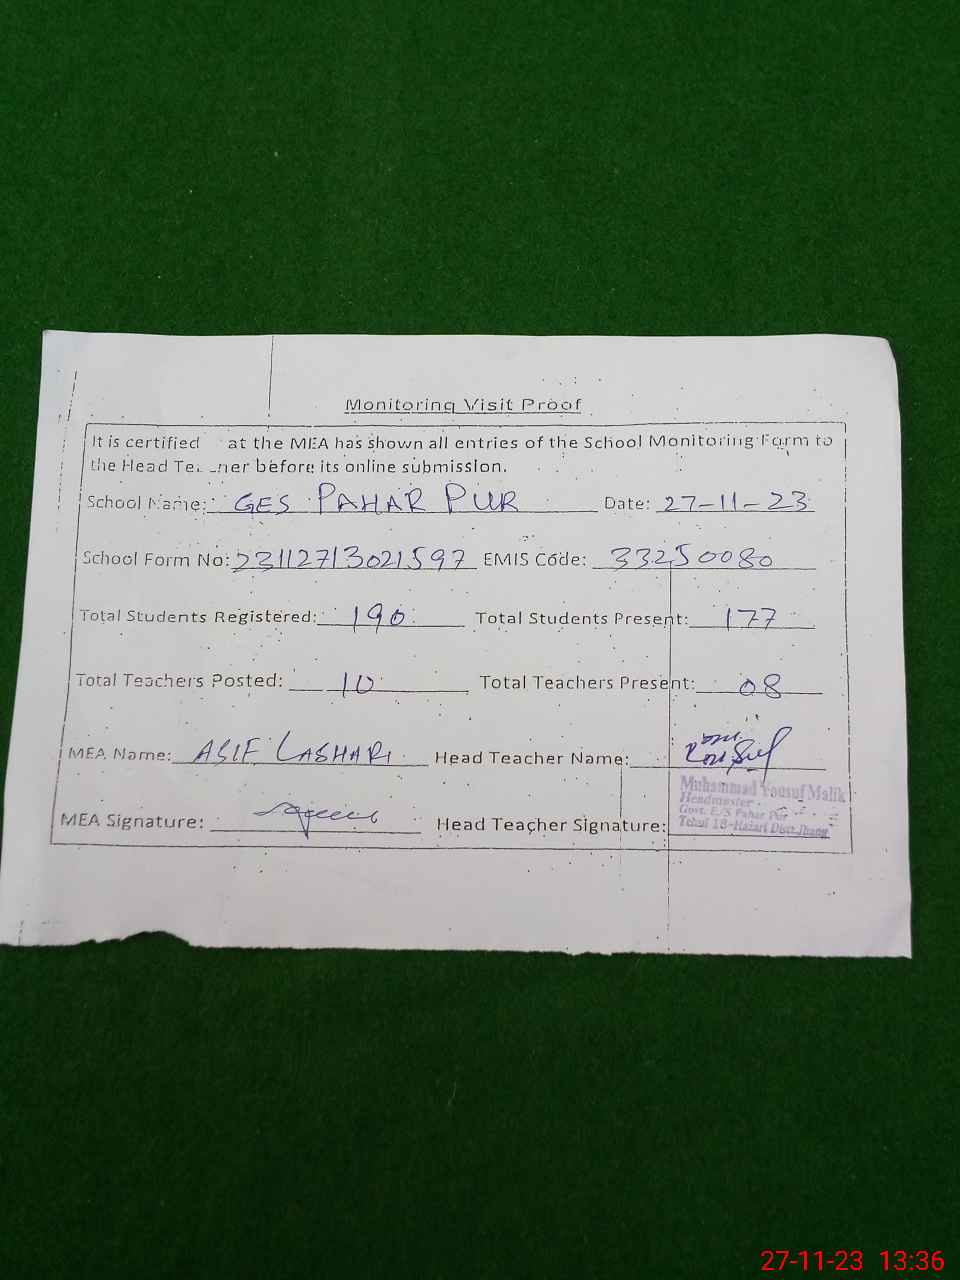 Monitoring Visit Proof
It is certified at the MEA has shown all entries of the School Monitoring Form to
the Head Te ner before its online submission.
School Name: GES PAHAR PUR Date: 27-11-23
School Form No: 23112713021597 EMIS Code: 33250080
Total Students Registered: 190 Total Students Present: 177
Total Teachers Posted: 10 Total Teachers Present: 08
MEA Name: ASIF LASHARI Head Teacher Name:
Muhammad Yousuf Malik
Headmaster
Govt. E/S Pahar Pur
Tehsil 18-Hazari Distt. Jhang
MEA Signature: Head Teacher Signature:
27-11-23 13:36